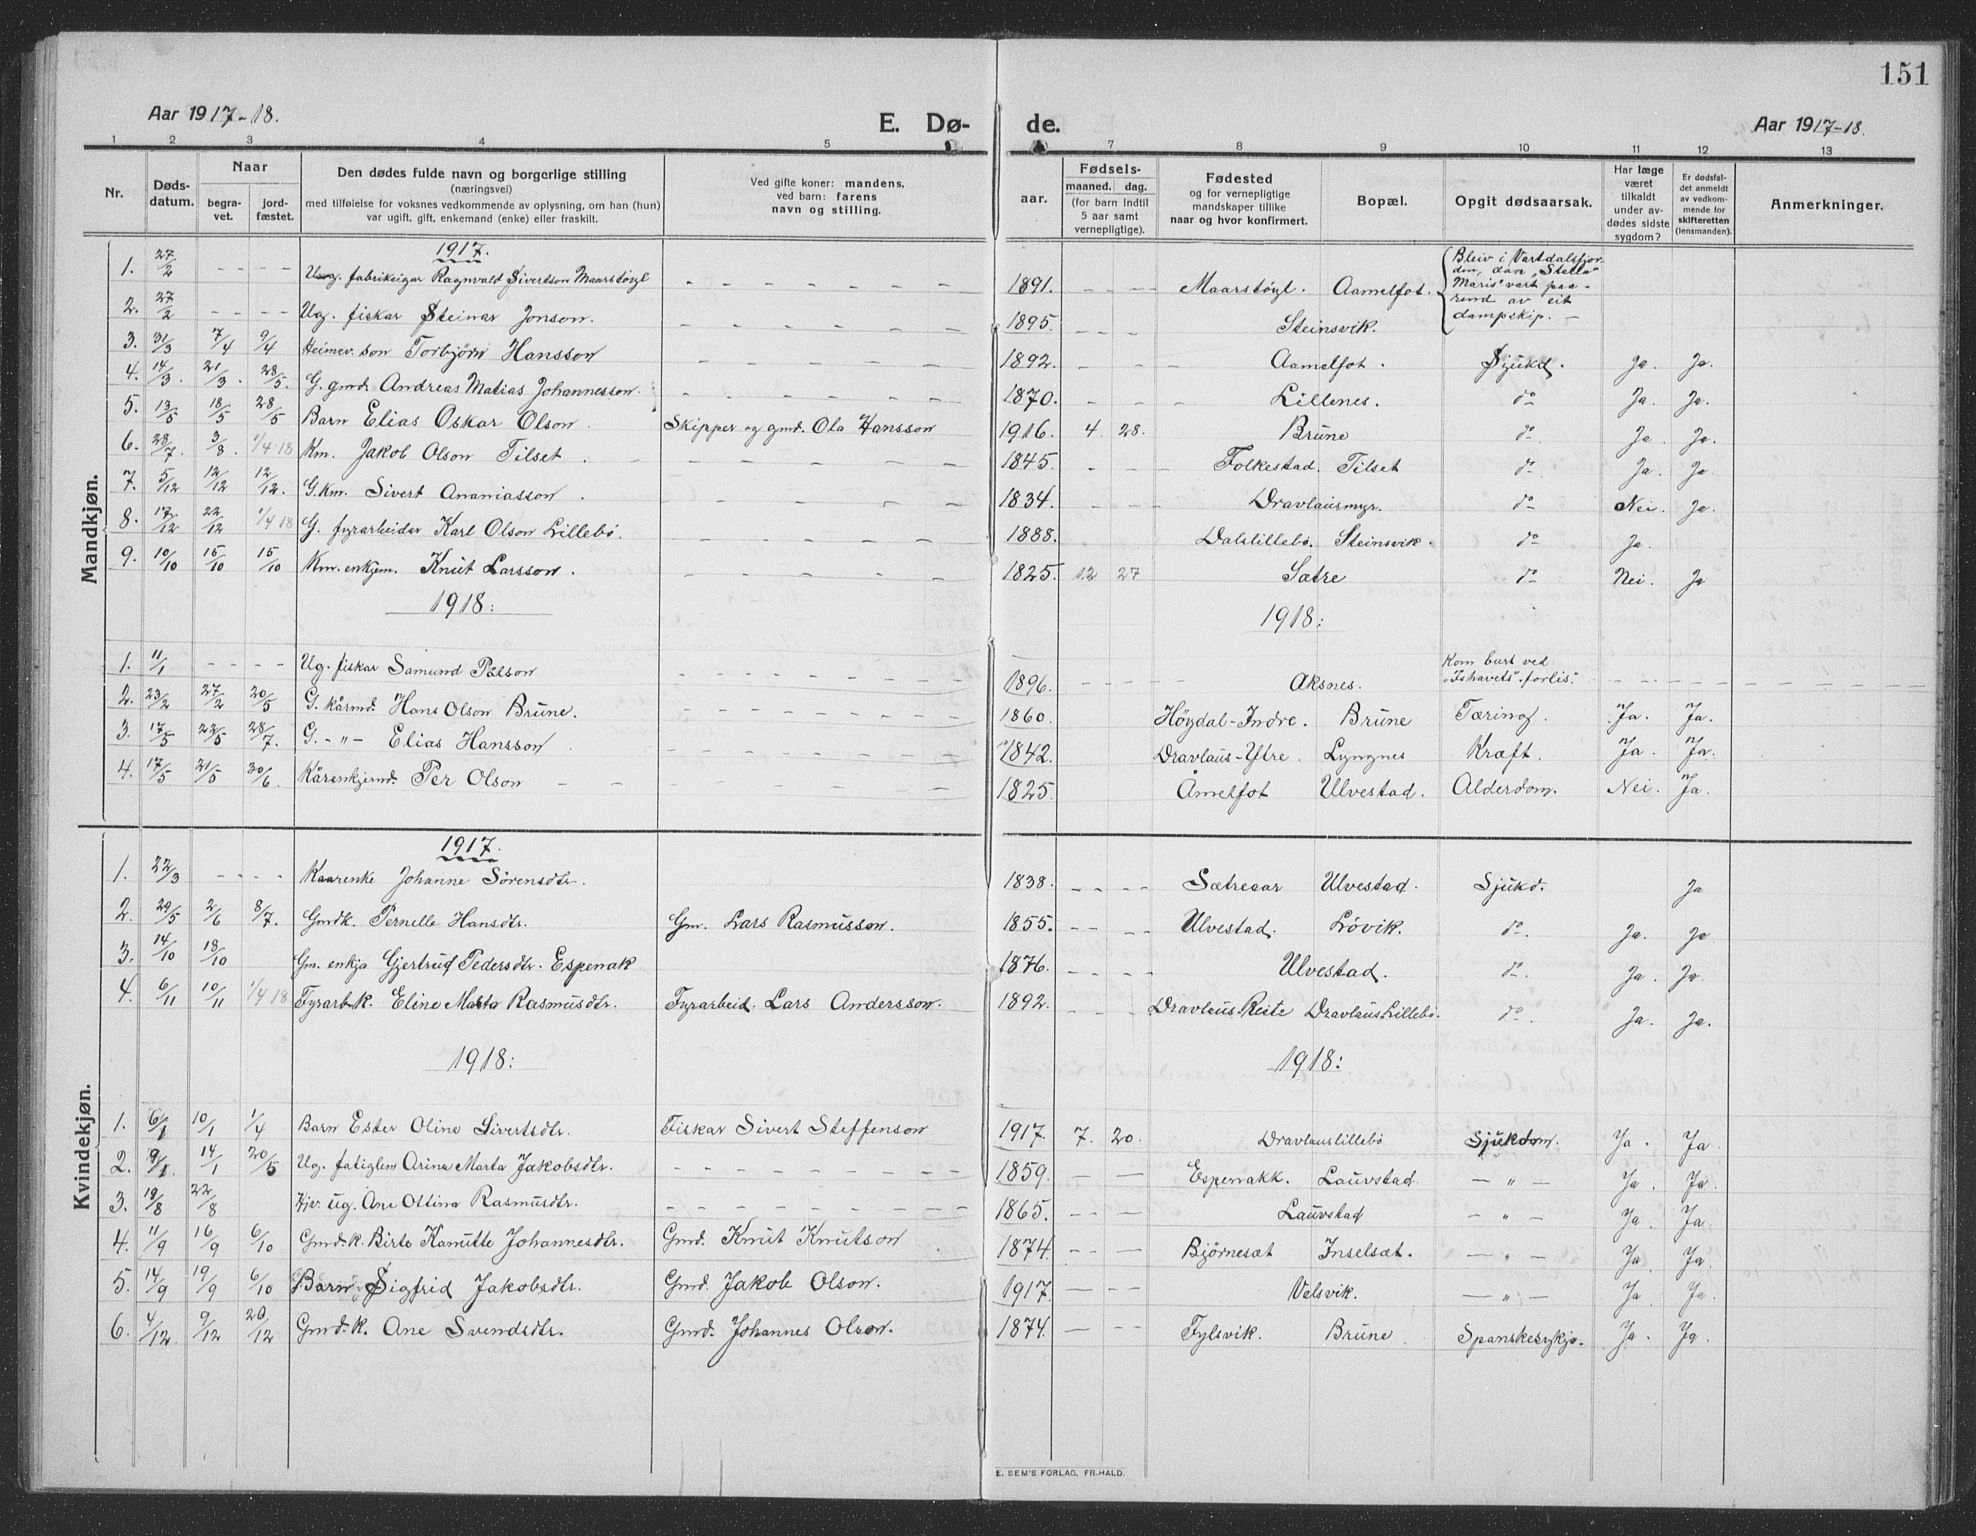 151
Aar 1917-18.
E. Dø-
de.
Aar 1917-18.
1 2 3 4 5 7 8 9 10 11 12 13
Nr.
Døds-
datum.
Naar
begra-
vet.
jord-
fæstet.
Den dødes fulde navn og borgerlige stilling
(næringsvei)
med tilføielse for voksnes vedkommende av oplysning, om han (hun)
var ugift, gift, enkemand (enke) eller fraskilt.
Ved gifte koner: mandens,
ved barn: farens
navn og stilling.
aar.
Fødsels-
maaned. dag.
(for barn indtil
5 aar samt
vernepligtige).
Fødested
og for vernepligtige
mandskaper tillike
naar og hvor konfirmert.
Bopæl.
Opgit dødsaarsak.
Har læge
været
tilkaldt
under av-
dødes sidste
sygdom?
Er dødsfal-
det anmeldt
av vedkom-
mende for
skifteretten
(lensmanden).
Anmerkninger.
Mandkjøn.
1917.
1. 27/2 - - - - Ung. fabrikeigar Ragnvald Sivertson Maarstöyl - - - 1891. - - - - Maarstöyl. Aamelfot. Bleiv i Vartdalsfjor-
den, daa "Stella
Maris" vart paa-
rend av eit
dampskip. -
2. 27/2 - - - - Ug. fiskar Steinar Jonson. - - - 1895. - - - Steinsvik.
3. 31/3 7/4 9/4 Heimev. son Torbjörn Hansson - - - 1892. - - - Aamelfot. Sjukd. Ja. Ja.
4. 14/3. 21/3. 28/5. G. gmd. Andreas Matias Johannesson. - - - 1870. - - - Lillenes. do Ja. Ja.
5. 13/5 18/5 28/5 Barn Elias Oskar Olson. Skipper og gmd. Ola Hansson 1916. 4. 28. Brune do Ja. Ja.
6. 28/7 3/8. 1/4-18 Km. Jakob Olson Tilset. - - - 1845. - - - Folkestad. Tilset do Ja. Ja
7. 5/12 12/12 12/12. G. km. Sivert Ananiasson. - - - 1834. - - - Dravlausmyr. do Nei. Ja.
8. 17/12. 22/12 1/4 18 G. fyrarbeidar Karl Olson Lillebö. - - - 1888. Dalslillebö. Steinsvik. do Ja.
9. 10/10 15/10 15/10 Km. enkjem. Knut Larsson. - - - 1825. 12 27 Sætre do Nei. Ja
1918: 1918:
1. 11/1 - - - - Ug. fiskar Samund Pålson - - - 1896. - - - Aksnes. Kom burt ved
"Ishavets" forlis. - - -
2. 23/2 27/2 20/5 G. kårmd. Hans Olson Brune. - - - 1860. Höydal-Indre. Brune Tæring. Ja. Ja.
3. 17/5 22/5 28/7. G. -"- Elias Hansson - - - 1842. Dravlaus-Ytre. Lyngnes Kræft. Ja. Ja.
4. 17/5 21/5 30/6. Kårenkjemd. Per Olson - - - 1825. Åmelfot Ulvestad. Alderdom. Nei. Ja.
Kvindekjøn.
1917.
1. 22/3 - - - - Kaarenke Johanne Sörensdtr. 1838. - - - - Sætreaar Ulvestad. Sjukd. Ja
2. 29/5 2/6 8/7. Gmdk. Pernelle Hansdtr. Gm. Lars Rasmusson. 1855. - - - - Ulvestad. Lövik. do. Ja. Ja
3. 14/10 18/10 Gm. enkja Gjertrud Pedersdtr. Espenak 1876. - - - - Ulvestad. do. Ja. Ja.
4. 6/11 10/11 1/4 18 Fyrarb.k. Eline Marta Rasmusdtr. Fyrarbeid. Lars Andersson. 1892. - - - - Dravlaus-Reite Dravlaus-Lillebö. do. Ja. Ja.
1918: 1918:
1. 6/1 10/1 1/4 Barn Ester Oline Sivertsdtr. Fiskar Sivert Steffenson 1917. 7. 20. Dravlauslillebö Sjukdom. Ja. Ja
2. 9/1. 14/1 20/5 Ug. fatiglem Arina Marta Jakobsdtr. - - - 1859. - - Espenakk. Lauvstad. - " - Ja. Ja.
3. 19/8 22/8 Hjv. ug. Ane Ottina Rasmusdtr. - - - 1865. - - - Lauvstad - " - Ja. Ja.
4. 11/9 16/9 6/10 Gmd.k. Birte Kanutte Johannesdtr. Gmd. Knut Knutson 1874. - - - Bjørnesæt Inselsæt. - " - Ja. Ja.
5. 14/9 19/9 6/10 Barn Sigfrid Jakobsdtr. Gmd. Jakob Olson. 1917. - - Velsvik. - " - Ja. Ja.
6. 4/12. 9/12 20/12 Gmd.k. Ane Svendsdtr. Gmd. Johannes Olson. 1874. - - Fylsvik. Brune. Spanskesykja. Ja. Ja.
E. SEM'S FORLAG, FR.HALD.